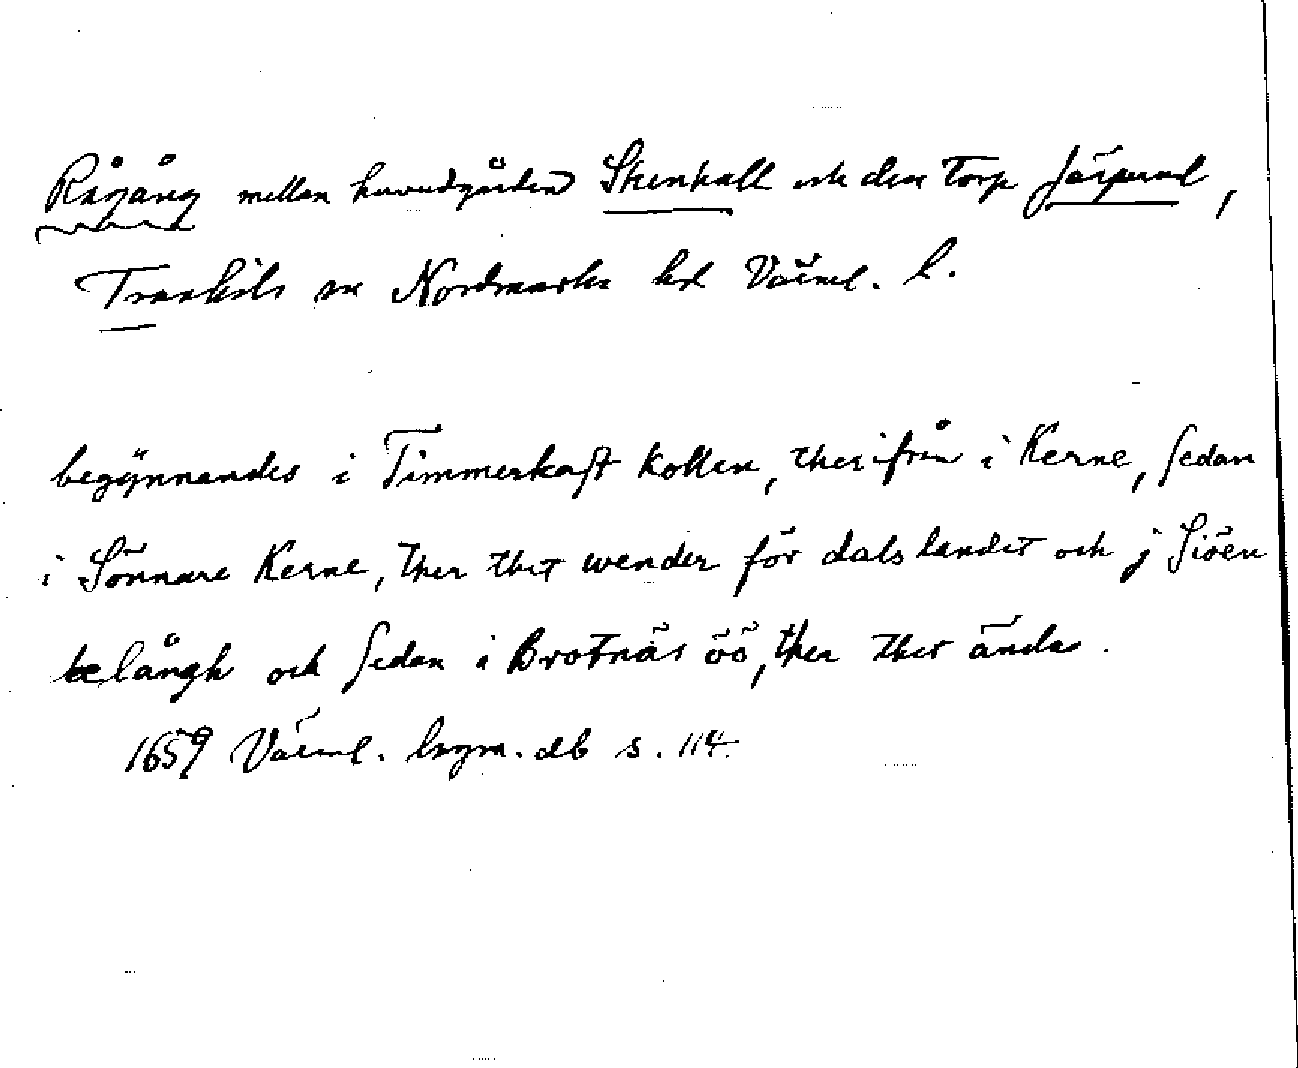 Rågång mellan huvudgården Stenhall och dess Torp Järpurud,
Trankils sn Nordmarks hd Värml. l.
begÿnnandes i Timmerkast kollen, therifrån i Kerne, sedan
i Sönnare Kerne, ther thet wender för dalslandet och j Siöen
belångh och sedan i Brotnäs öö, ther thet ända.
1659 Värml. lagm. db s. 114.